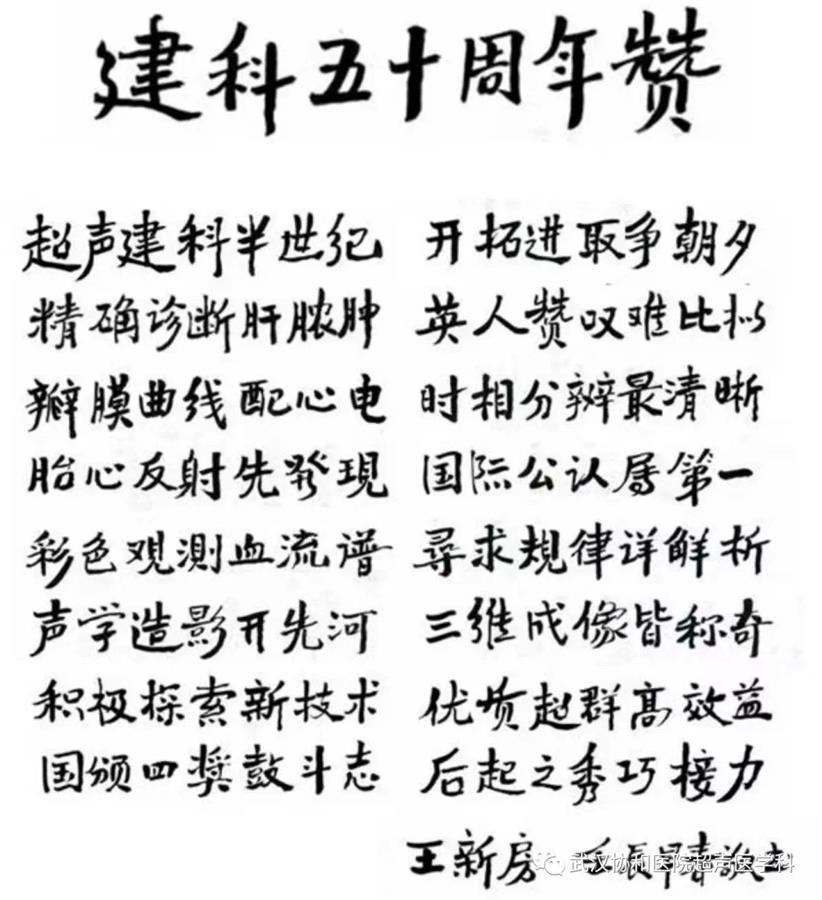 建科五十周年赞
超声建科半世纪 开拓进取争朝夕
精确诊断肝脓肿 英人赞叹难比拟
瓣膜曲线配心电 时相分辨最清晰
胎心反射先發現 国际公认属第一
彩色观测血流谱 尋求規律详解析
声学造影开先河 三维成像皆称奇
积极探索新技术 优质超群高效益
国颁四奖鼓斗志 后起之秀巧接力
王新房 壬辰早春
武汉协和医院超声医学科